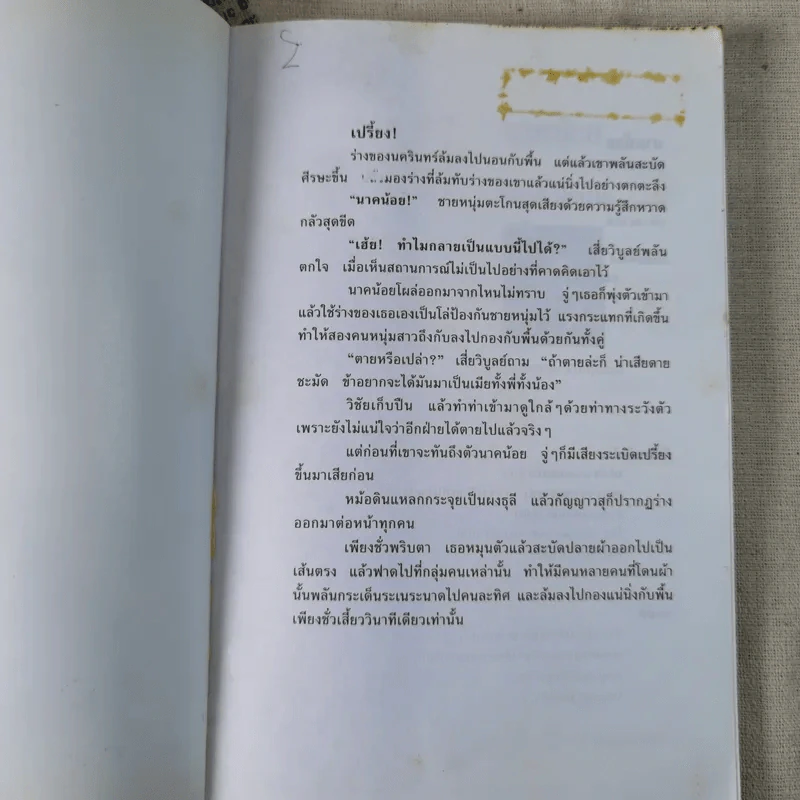 เปรี้ยง!
ร่างของนครินทร์ล้มลงไปนอนกับพื้น แต่แล้วเขาพลันสะบัด
ศีรษะขึ้น มองร่างที่ล้มทับร่างของเขาแล้วแน่นิ่งไปอย่างตกตะลึง
“นาคน้อย!” ชายหนุ่มตะโกนสุดเสียงด้วยความรู้สึกหวาด
กลัวสุดขีด
“เฮ้ย! ทำไมกลายเป็นแบบนี้ไปได้?” เสี่ยวิบูลย์พลัน
ตกใจ เมื่อเห็นสถานการณ์ไม่เป็นไปอย่างที่คาดคิดเอาไว้
นาคน้อยโผล่ออกมาจากไหนไม่ทราบ จู่ๆเธอก็พุ่งตัวเข้ามา
แล้วใช้ร่างของเธอเองเป็นโล่ป้องกันชายหนุ่มไว้ แรงกระแทกที่เกิดขึ้น
ทำให้สองคนหนุ่มสาวถึงกับลงไปกองกับพื้นด้วยกันทั้งคู่
“ตายหรือเปล่า?” เสี่ยวิบูลย์ถาม “ถ้าตายล่ะก็ น่าเสียดาย
ชะมัด ข้าอยากจะได้มันมาเป็นเมียทั้งพี่ทั้งน้อง”
วิชัยเก็บปืน แล้วทำท่าเข้ามาดูใกล้ๆด้วยท่าทางระวังตัว
เพราะยังไม่แน่ใจว่าอีกฝ่ายได้ตายไปแล้วจริงๆ
แต่ก่อนที่เขาจะทันถึงตัวนาคน้อย จู่ๆก็มีเสียงระเบิดเปรี้ยง
ขึ้นมาเสียก่อน
หม้อดินแหลกกระจุยเป็นผงธุลี แล้วกัญญาวสุก็ปรากฏร่าง
ออกมาต่อหน้าทุกคน
เพียงชั่วพริบตา เธอหมุนตัวแล้วสะบัดปลายผ้าออกไปเป็น
เส้นตรง แล้วฟาดไปที่กลุ่มคนเหล่านั้น ทำให้มีคนหลายคนที่โดนผ้า
นั้นพลันกระเด็นระเนระนาดไปคนละทิศ และล้มลงไปกองแน่นิ่งกับพื้น
เพียงชั่วเสี้ยววินาทีเดียวเท่านั้น